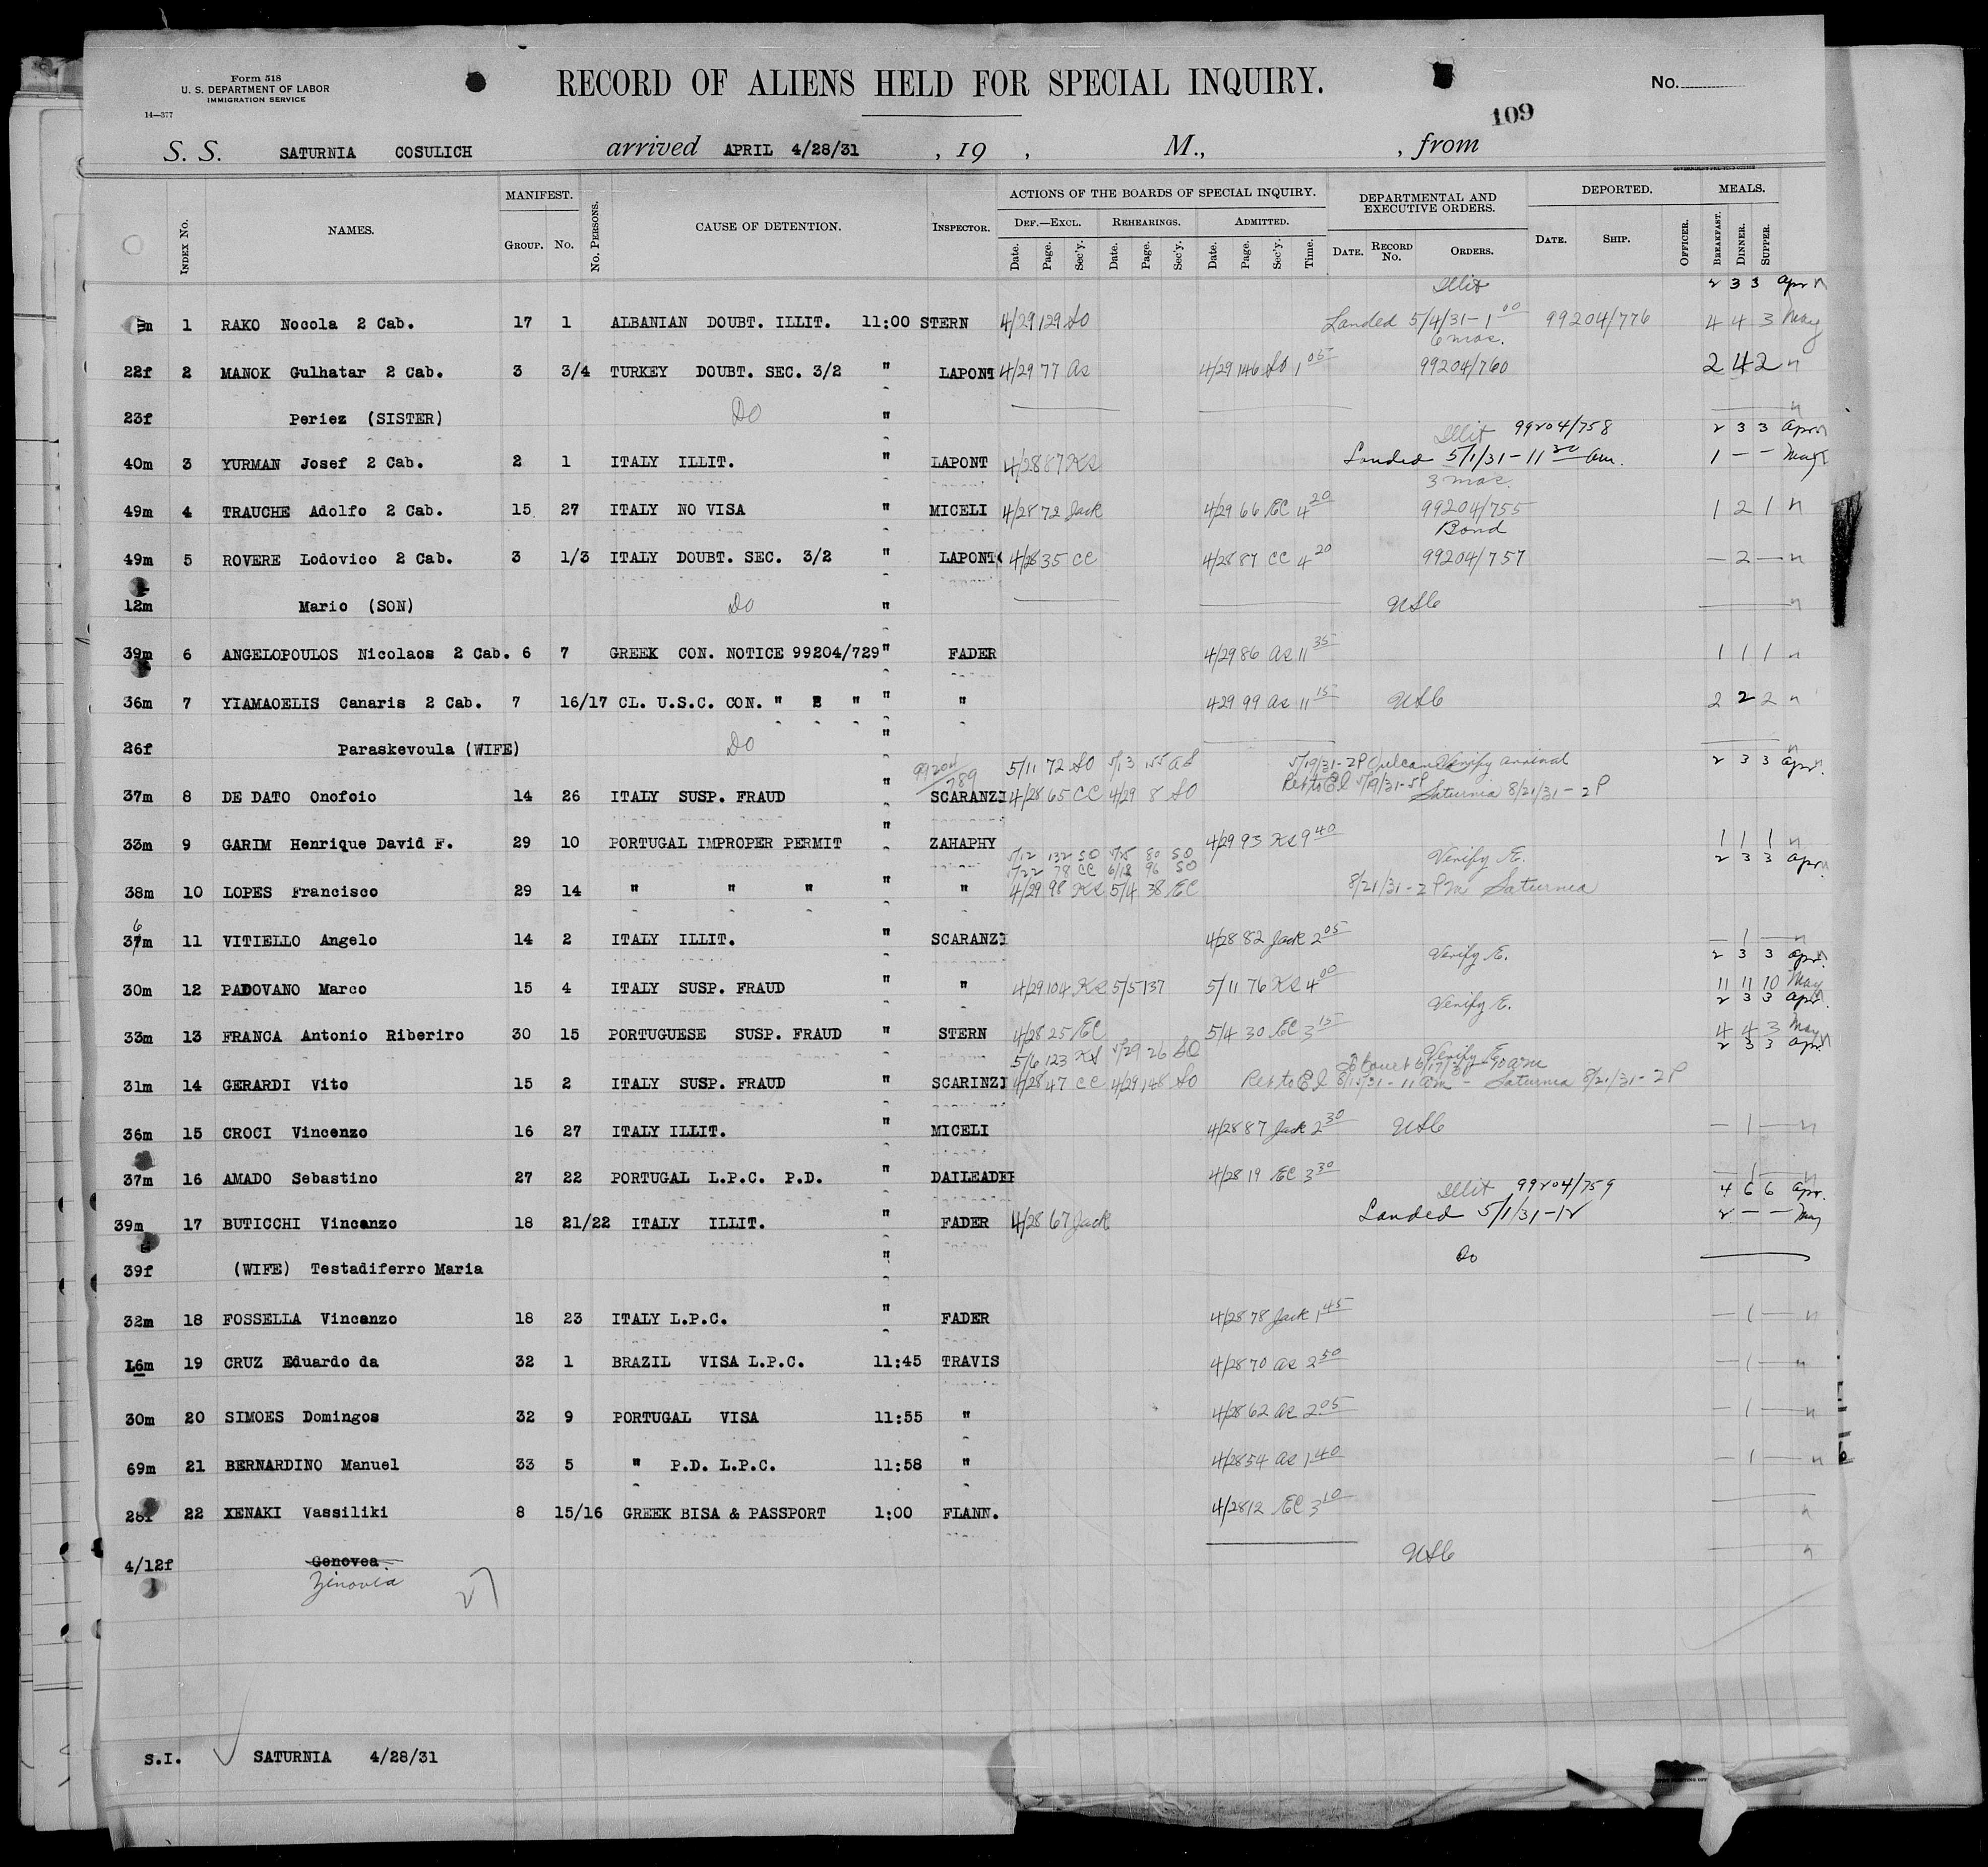 Form 518
U. S. DEPARTMENT OF LABOR
IMMIGRATION SERVICE
14—377
RECORD OF ALIENS HELD FOR SPECIAL INQUIRY.
No.
109
S. S. SATURNIA COSULICH arrived APRIL 4/28/31 , 19 , M., , from
INDEX No. NAMES. MANIFEST. GROUP. No. No. PERSONS. CAUSE OF DETENTION. INSPECTOR. ACTIONS OF THE BOARDS OF SPECIAL INQUIRY. DEPARTMENTAL AND EXECUTIVE ORDERS. DEPORTED. MEALS.
DEF.—EXCL. REHEARINGS. ADMITTED.
Date. Page. Sec'y. Date. Page. Sec'y. Date. Page. Sec'y. Time. DATE. RECORD No. ORDERS. DATE. SHIP. OFFICER. BREAKFAST. DINNER. SUPPER.
Illit 2 3 3 Apr
1 RAKO Nocola 2 Cab. 17 1 ALBANIAN DOUBT. ILLIT. 11:00 STERN 4/29 129 SO Landed 5/4/31-1 00 99204/776 4 4 3 May
6 mos.
22f 2 MANOK Gulhatar 2 Cab. 3 3/4 TURKEY DOUBT. SEC. 3/2 " LAPONT 4/29 77 as 4/29 146 SO 1 05 99204/760 2 4 2 n
23f Periez (SISTER) Do " n
Illit 99204/758 2 3 3 Apr
40m 3 YURMAN Josef 2 Cab. 2 1 ITALY ILLIT. " LAPONT 4/28 87 KS Landed 5/1/31-11 30 am. 1 — — May
3 mos.
49m 4 TRAUCHE Adolfo 2 Cab. 15 27 ITALY NO VISA " MICELI 4/28 72 Jack 4/29 66 EC 4 20 99204/755 1 2 1 n
Bond
49m 5 ROVERE Lodovico 2 Cab. 3 1/3 ITALY DOUBT. SEC. 3/2 " LAPONT 4/28 35 CC 4/28 87 CC 4 20 99204/757 — 2 — n
12m Mario (SON) Do " USC n
39m 6 ANGELOPOULOS Nicolaos 2 Cab. 6 7 GREEK CON. NOTICE 99204/729 " FADER 4/29 86 as 11 35 1 1 1 n
36m 7 YIAMAOELIS Canaris 2 Cab. 7 16/17 CL. U.S.C. CON. " " " " 429 99 as 11 15 USC 2 2 2 n
26f Paraskevoula (WIFE) Do " n
99204/789 5/11 72 SO 5/13 155 as 5/19/31-2P Vulcania Verify arrival 2 3 3 Apr.
37m 8 DE DATO Onofoio 14 26 ITALY SUSP. FRAUD " SCARANZI 4/28 65 CC 4/29 8 SO Ret to EI 5/19/31-5P Saturnia 8/21/31-2P
33m 9 GARIM Henrique David F. 29 10 PORTUGAL IMPROPER PERMIT " ZAHAPHY 4/29 93 KS 9 40 1 1 1 n
5/12 132 SO 5/25 80 SO Verify E. 2 3 3 Apr
5/22 78 CC 6/12 96 SO
38m 10 LOPES Francisco 29 14 " " " " " 4/29 98 KS 5/4 38 EC 8/21/31-2 PM Saturnia
37m 11 VITIELLO Angelo 14 2 ITALY ILLIT. " SCARANZI 4/28 82 Jack 2 05 — 1 — n
6
Verify E. 2 3 3 Apr.
30m 12 PADOVANO Marco 15 4 ITALY SUSP. FRAUD " " 4/29 104 KS 5/5 137 5/11 76 KS 4 00 11 11 10 May
Verify E. 2 3 3 Apr
33m 13 FRANCA Antonio Riberiro 30 15 PORTUGUESE SUSP. FRAUD " STERN 4/28 25 EC 5/4 30 EC 3 15 4 4 3 May
5/6 123 KS 5/29 26 SO Verify E. 2 3 3 Apr.
To Court 6/17/31-10 am
31m 14 GERARDI Vito 15 2 ITALY SUSP. FRAUD " SCARINZI 4/28 47 CC 4/29 148 SO Ret to EI 8/15/31-11 am - Saturnia 8/21/31-2P
36m 15 CROCI Vincenzo 16 27 ITALY ILLIT. " MICELI 4/28 87 Jack 2 30 USC — 1 — n
37m 16 AMADO Sebastino 27 22 PORTUGAL L.P.C. P.D. " DAILEADER 4/28 19 EC 3 30 — 1 — n
Illit 99204/759 4 6 6 Apr.
39m 17 BUTICCHI Vincanzo 18 21/22 ITALY ILLIT. " FADER 4/28 67 Jack Landed 5/1/31-12 2 — — May
39f (WIFE) Testadiferro Maria " Do
32m 18 FOSSELLA Vincanzo 18 23 ITALY L.P.C. " FADER 4/28 78 Jack 1 45 — 1 — n
16m 19 CRUZ Eduardo da 32 1 BRAZIL VISA L.P.C. 11:45 TRAVIS 4/28 70 as 2 50 — 1 — n
30m 20 SIMOES Domingos 32 9 PORTUGAL VISA 11:55 " 4/28 62 as 2 05 — 1 — n
69m 21 BERNARDINO Manuel 33 5 " P.D. L.P.C. 11:58 " 4/28 54 as 1 40 — 1 — n
28f 22 XENAKI Vassiliki 8 15/16 GREEK BISA & PASSPORT 1:00 FLANN. 4/28 12 EC 3 10 n
4/12f Genovea USC n
Zinovia 27
S.I. SATURNIA 4/28/31